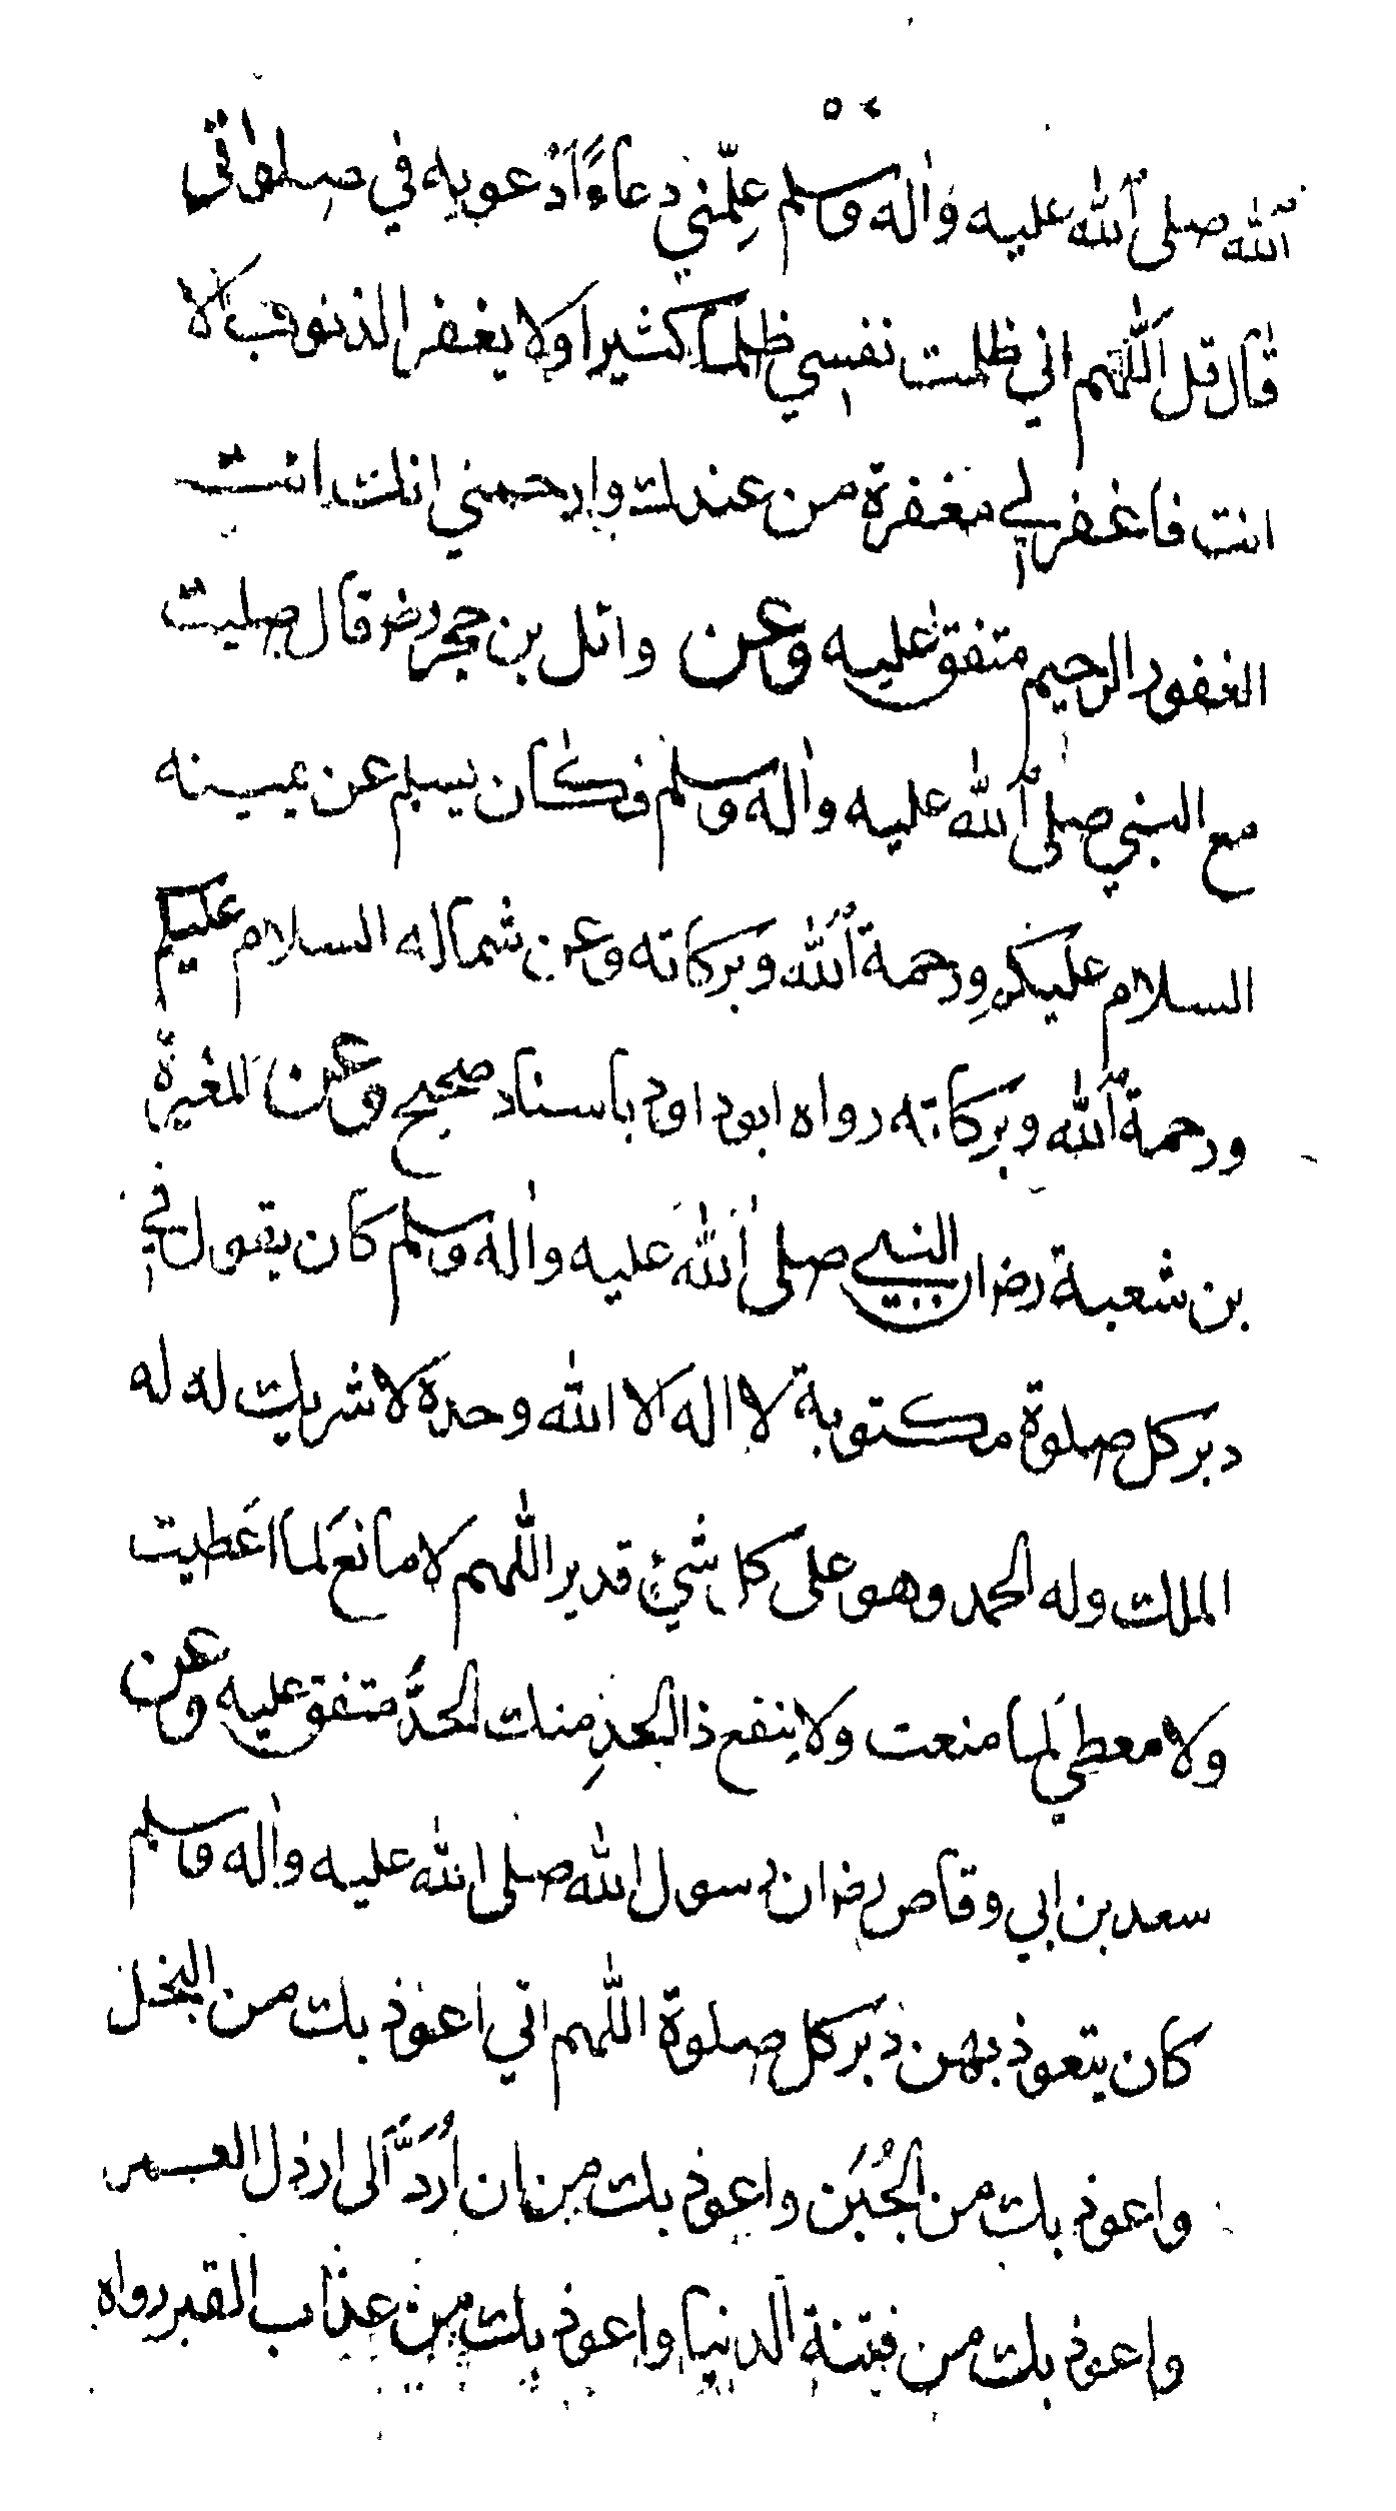 الله صلى الله عليه واله وسلم علّمني دعاءً أدعو به في صلوتي
قال قل اللهم اني ظلمت نفسي ظلما كثيرا ولا يغفر الذنوب الا
انت فاغفر لي مغفرة من عندك وارحمني انك انت
الغفور الرحيم متفق عليه وعن وائل بن حجر رضر قال صليت
مع النبي صلى الله عليه واله وسلم فكان يسلم عن يمينه
السلام عليكم ورحمة الله وبركاته وعن شماله السلام عليكم
ورحمة الله وبركاته رواه ابو داود باسناد صحيح وعن المغيرة
بن شعبة رضر ان النبي صلى الله عليه واله وسلم كان يقول في
دبر كل صلوة مكتوبة لا اله الا الله وحده لا شريك له له
الملك وله الحمد وهو على كل شيء قدير اللهم لا مانع لما اعطيت
ولا معطي لما منعت ولا ينفع ذا الجد منك الجدُّ متفق عليه وعن
سعد بن ابي وقاص رضر ان رسول الله صلى الله عليه واله وسلم
كان يتعوذ بهن دبر كل صلوة اللهم اني اعوذ بك من البخل
واعوذ بك من الجُبن واعوذ بك من ان اُردَّ الى ارذل العمر
واعوذ بك من فتنة الدنيا واعوذ بك من عذاب القبر رواه